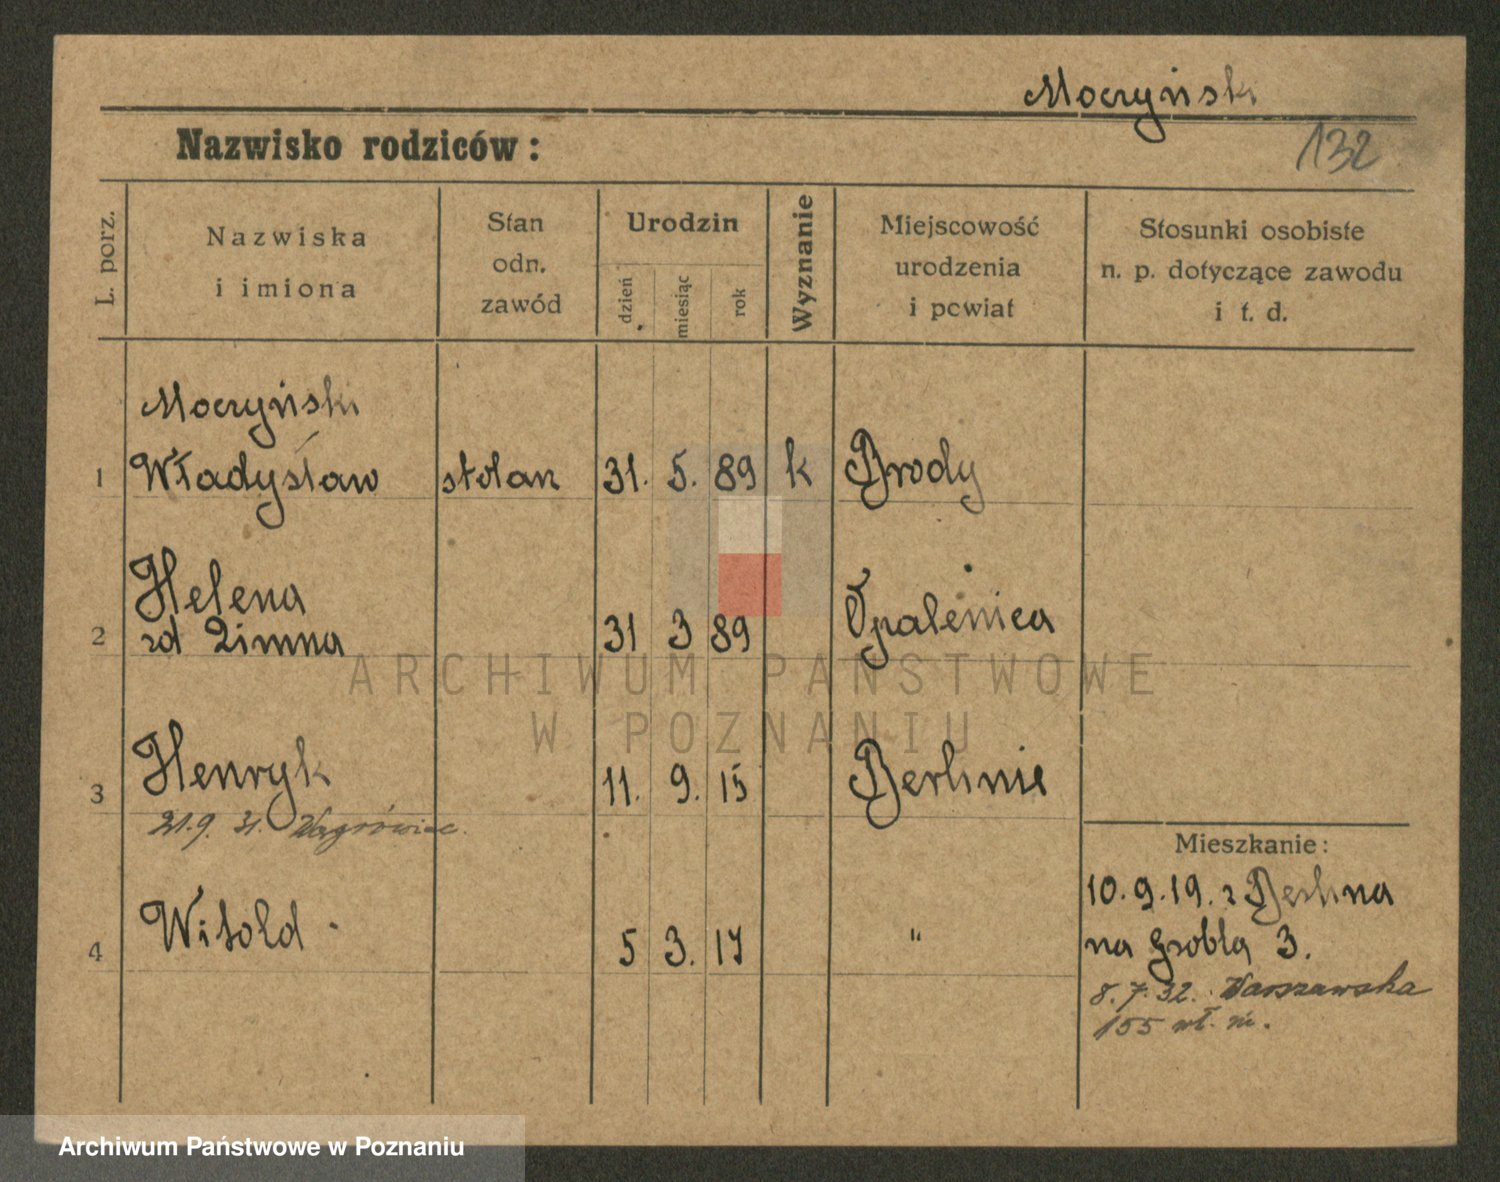 Moczyński
Nazwisko rodziców:
132
L. porz.
Nazwiska
i imiona
Stan
odn.
zawód
Urodzin
dzień
miesiąc
rok
Wyznanie
Miejscowość
urodzenia
i powiat
Stosunki osobiste
n. p. dotyczące zawodu
i t. d.
Moczyński
1 Władysław stolarz 31. 5. 89 k Brody
Helena
2 zd Zimna 31 3 89 Opalenica
3 Henryk 11. 9. 15 Berlinie
21.9. 31. Wągrówiec.
4 Witold 5 3. 17 "
Mieszkanie:
10.9.19. z Berlina
na Grobla 3.
8.7.32. Warszawska
155 wł. m.
ARCHIWUM PAŃSTWOWE
W POZNANIU
Archiwum Państwowe w Poznaniu